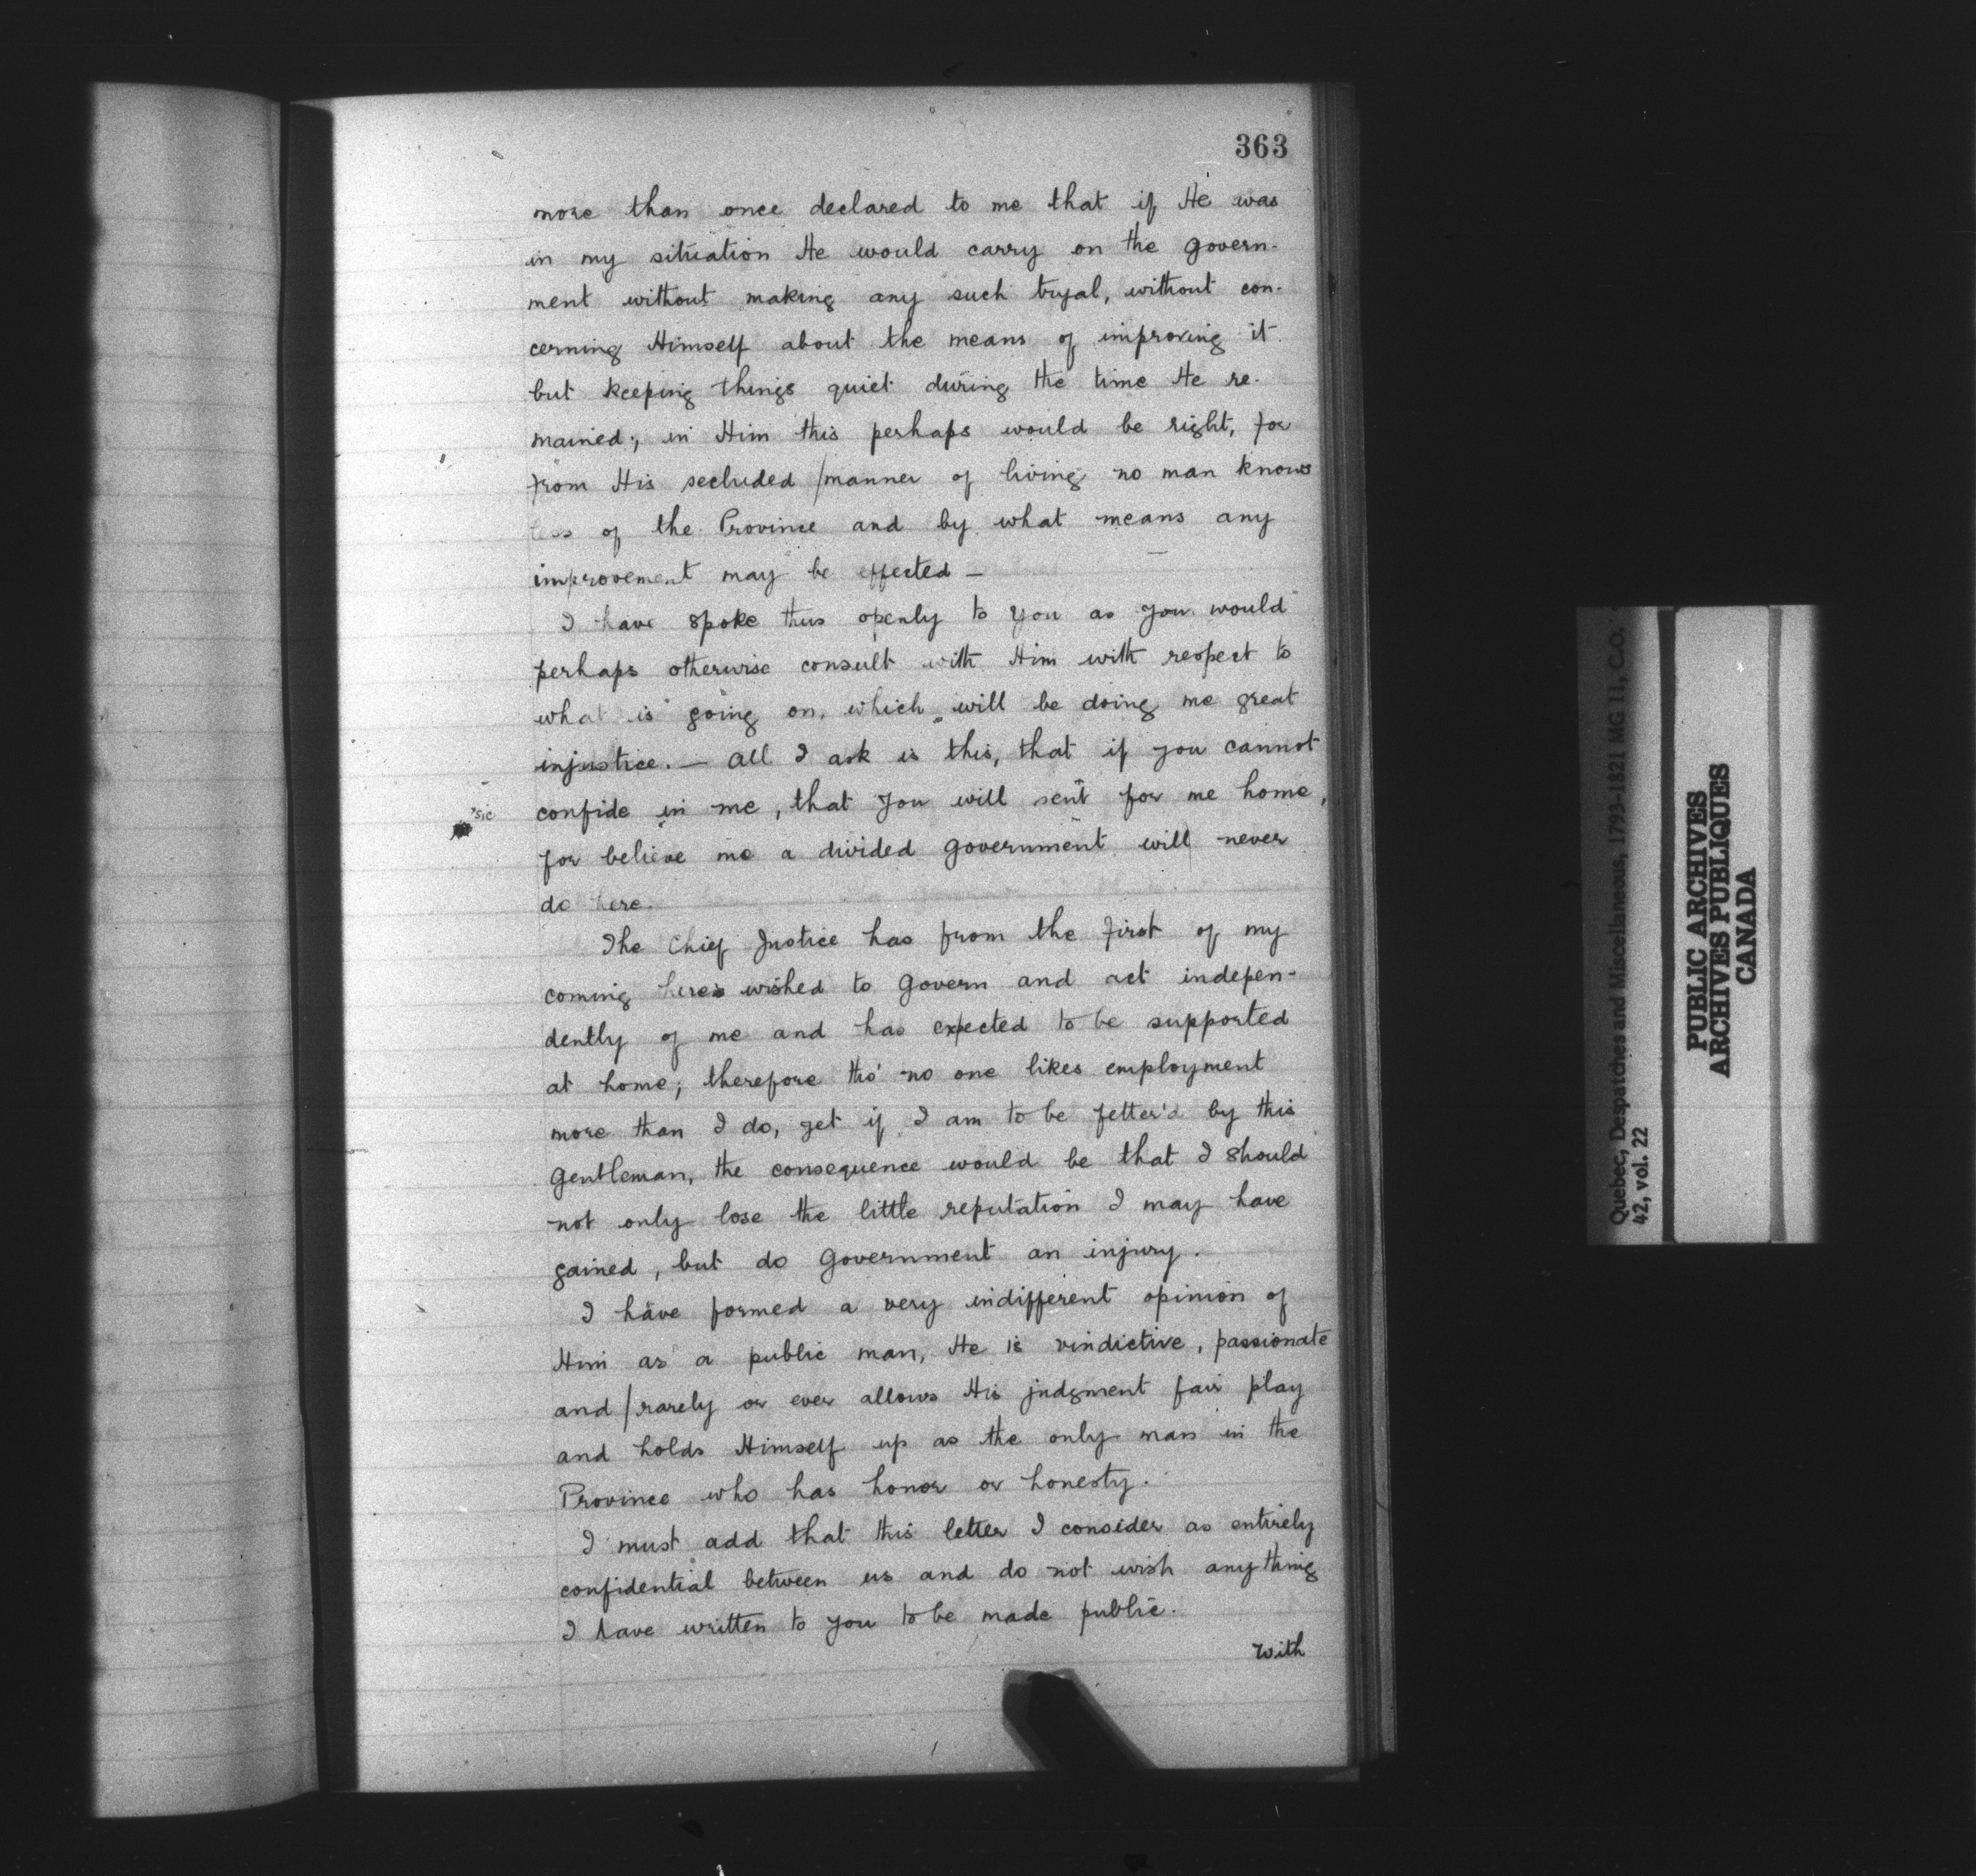 363
more than once declared to me that if He was
in my situation He would carry on the govern-
ment without making any such tryal, without con-
cerning Himself about the means of improving it
but keeping things quiet during the time He re-
mained; in Him this perhaps would be right, for
from His secluded /manner of living no man knows
less of the Province and by what means any
improvement may be effected —
I have spoke thus openly to You as you would
perhaps otherwise consult with Him with respect to
what is going on, which will be doing me great
injustice. — All I ask is this, that if you cannot
sic
confide in me, that you will sent for me home,
for believe me a divided government will never
do here.
The Chief Justice has from the first of my
coming here wished to Govern and act indepen-
dently of me and has expected to be supported
at home; therefore tho' no one likes employment
more than I do, yet if I am to be fetter'd by this
Gentleman, the consequence would be that I should
not only lose the little reputation I may have
gained, but do Government an injury.
I have formed a very indifferent opinion of
Him as a public man, He is vindictive, passionate
and /rarely or ever allows His judgment fair play
and holds Himself up as the only man in the
Province who has honor or honesty.
I must add that this letter I consider as entirely
confidential between us and do not wish anything
I have written to you to be made public.
With
Quebec, Despatches and Miscellaneous, 1793-1821 MG 11, C.O.
42, vol. 22
PUBLIC ARCHIVES
ARCHIVES PUBLIQUES
CANADA